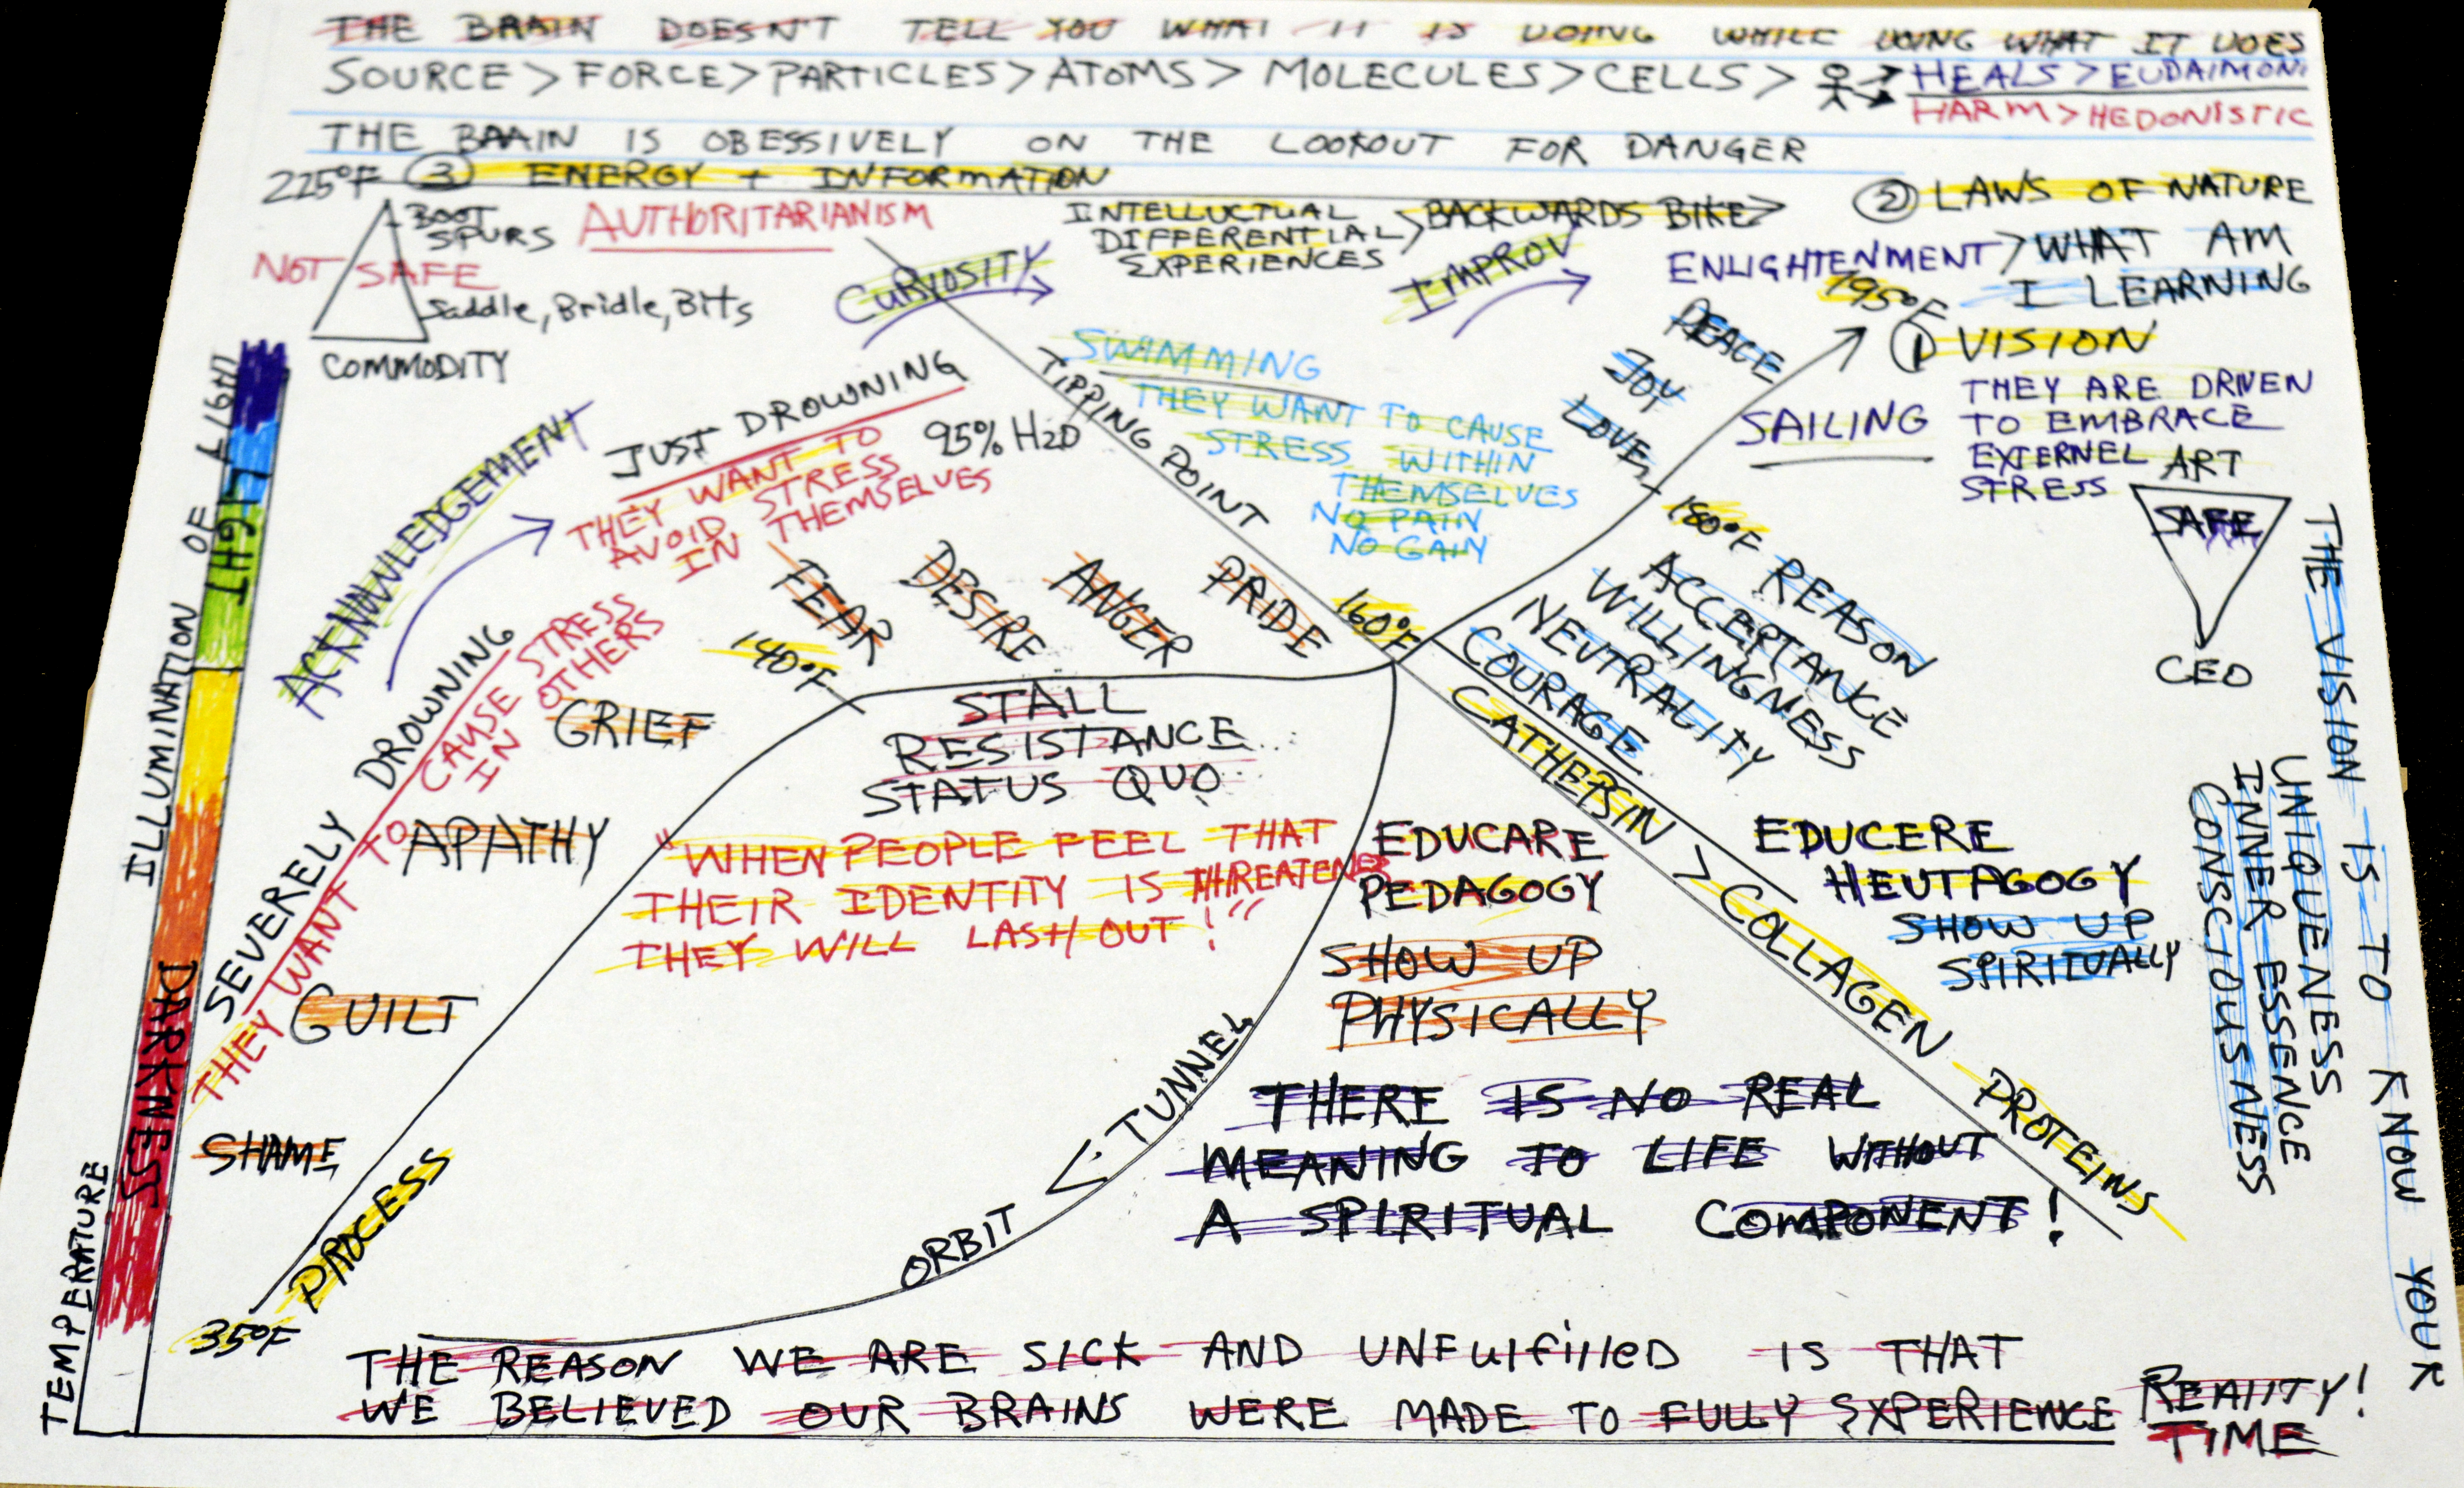 THE BRAIN DOESN'T TELL YOU WHAT IT IS DOING WHILE DOING WHAT IT DOES
SOURCE > FORCE > PARTICLES > ATOMS > MOLECULES > CELLS >
HEALS > EUDAIMONI
HARM > HEDONISTIC
THE BRAIN IS OBESSIVELY ON THE LOOKOUT FOR DANGER
225°F ③ ENERGY + INFORMATION
BOOT
SPURS
AUTHORITARIANISM
NOT SAFE
Saddle, Bridle, Bits
COMMODITY
CURIOSITY
INTELLUCTUAL
DIFFERENTIAL
EXPERIENCES
> BACKWARDS BIKE >
IMPROV
② LAWS OF NATURE
ENLIGHTENMENT > WHAT AM
I LEARNING
195°F
① VISION
THEY ARE DRIVEN
TO EMBRACE
EXTERNEL
STRESS
SAILING
ART
SAFE
CEO
PEACE
JOY
LOVE
180°F
REASON
ACCEPTANCE
WILLINGNESS
NEUTRALITY
COURAGE
SWIMMING
THEY WANT TO CAUSE
STRESS WITHIN
THEMSELVES
NO PAIN
NO GAIN
TIPPING POINT
JUST DROWNING
95% H2O
THEY WANT TO
AVOID STRESS
IN THEMSELVES
ACKNOWLEDGEMENT
SEVERELY DROWNING
THEY WANT TO CAUSE STRESS
IN OTHERS
FEAR
DESIRE
ANGER
PRIDE
160°F
140°F
GRIEF
APATHY
GUILT
SHAME
35°F
PROCESS
STALL
RESISTANCE
STATUS QUO
"WHEN PEOPLE FEEL THAT
THEIR IDENTITY IS THREATENED
THEY WILL LASH OUT!"
CATHEPSIN > COLLAGEN PROTEINS
EDUCARE
PEDAGOGY
SHOW UP
PHYSICALLY
EDUCERE
HEUTAGOGY
SHOW UP
SPIRITUALLY
ORBIT < TUNNEL
THERE IS NO REAL
MEANING TO LIFE WITHOUT
A SPIRITUAL COMPONENT!
THE REASON WE ARE SICK AND UNFulfillED IS THAT
WE BELIEVED OUR BRAINS WERE MADE TO FULLY EXPERIENCE REAlITY!
TIME
THE VISION IS TO KNOW YOUR
UNIQUENESS
INNER ESSENCE
CONSCIOUSNESS
TEMPERATURE
ILLUMINATION OF LIGHT
LIGHT
DARKNESS